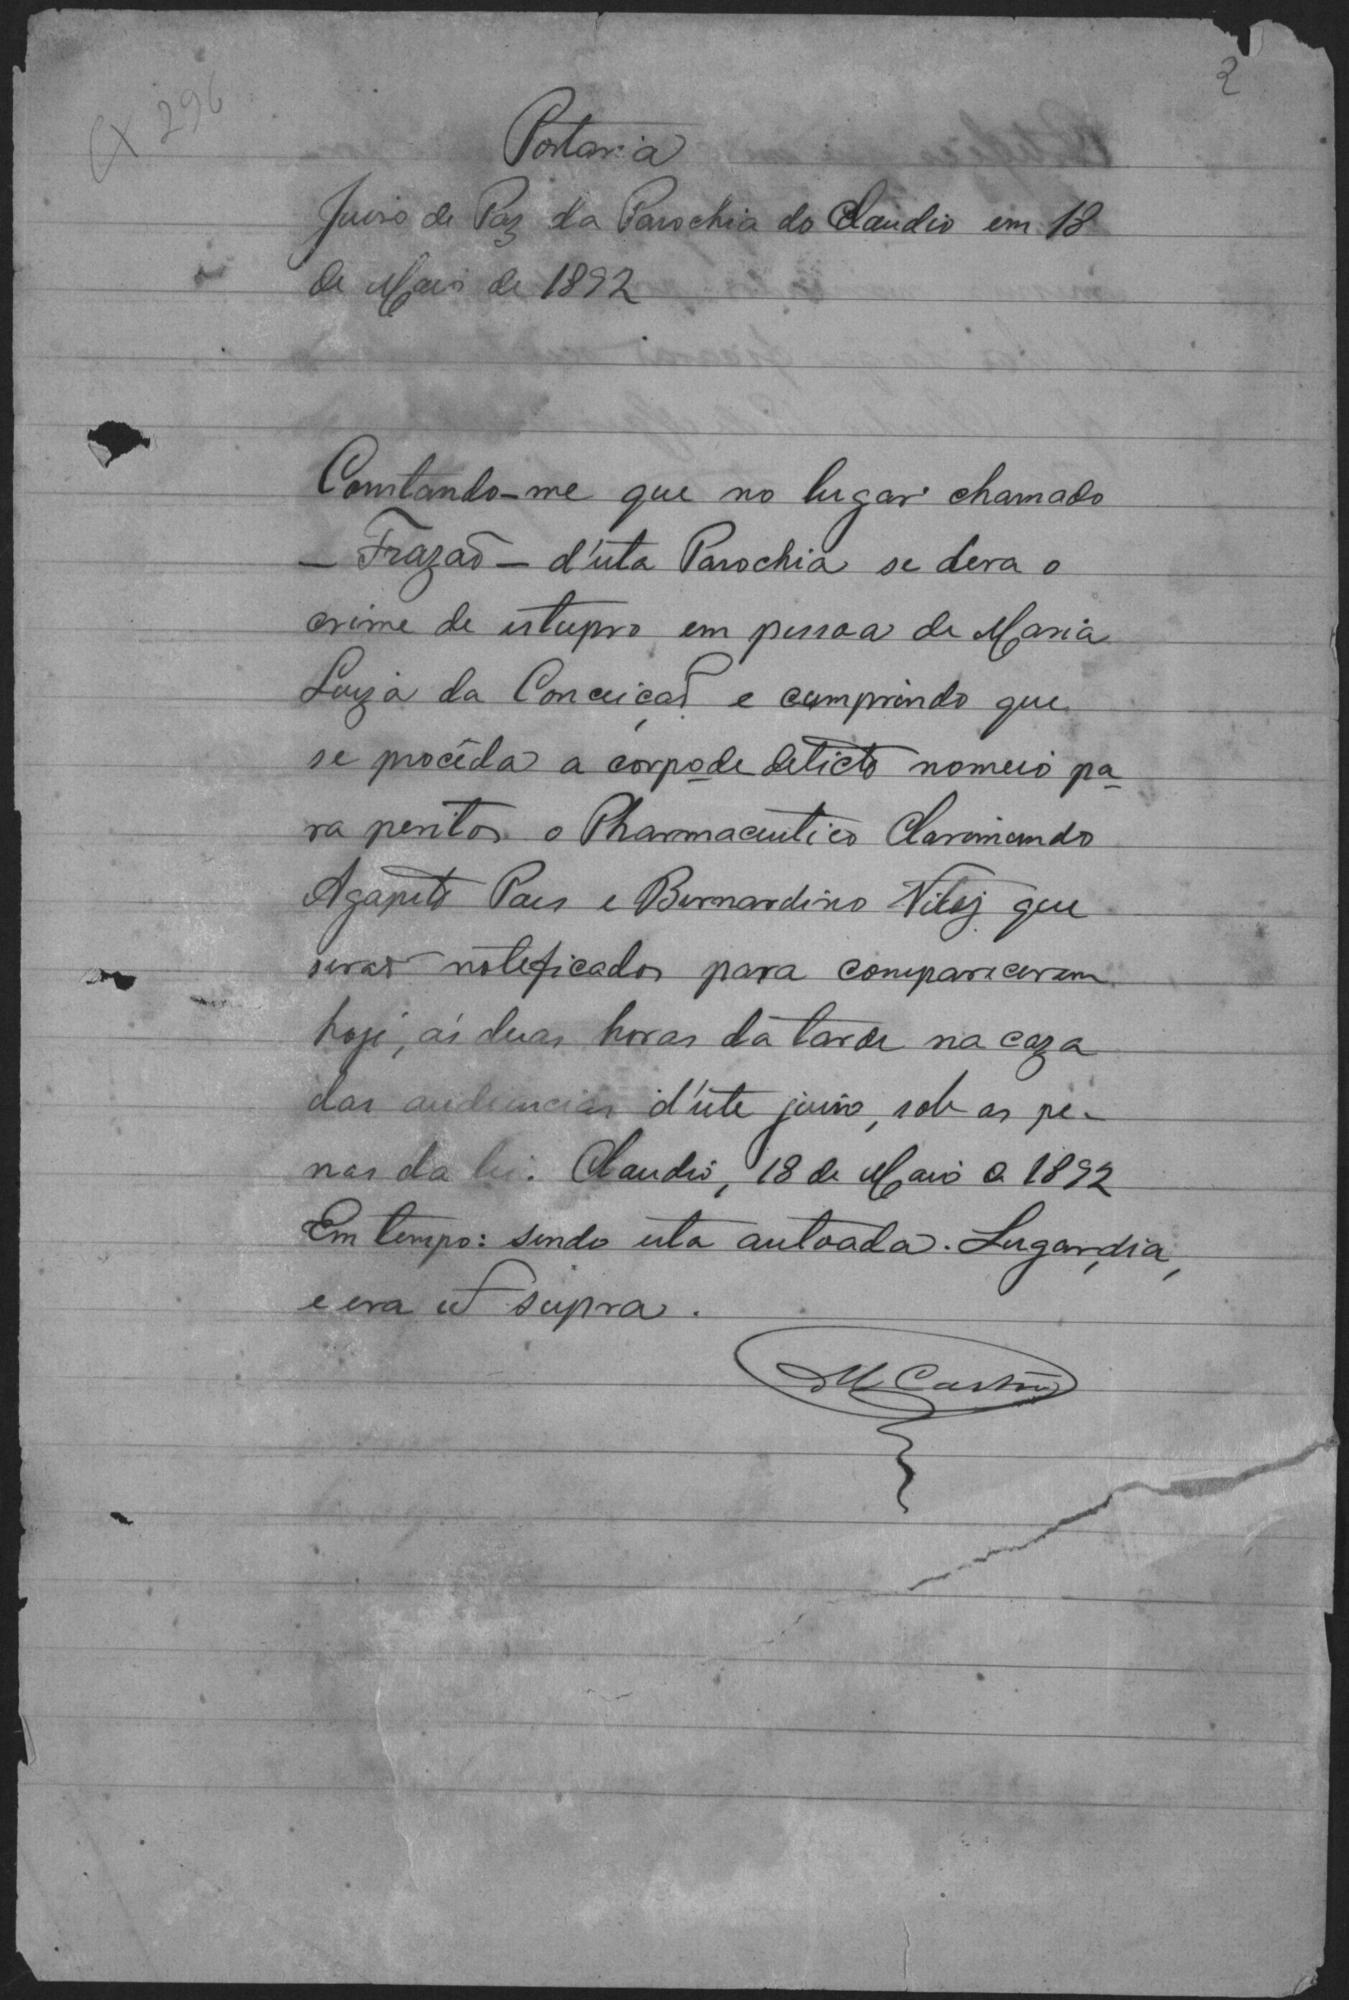 2
Cx 296
Portaria
Juiso de Paz da Parochia do Claudio em 18
de Maio de 1892
Constando-me que no lugar chamado
— Frazaõ — d'esta Parochia se dera o
crime de estupro em pessoa de Maria
Luiza da Conceiçaõ e cumprindo que
se procêda a corpo de delicto nomeio pa-
ra peritos o Pharmaceutico Clarimundo
Agapito Paes e Bernardino que
seraõ noteficados para comparecerem
hoje, ás duas horas da tarde na caza
das audiencias d'este juiso, sob as pe-
nas da lei. Claudio, 18 de Maio de 1892
Em tempo: sendo esta autoada. Lugar, dia,
e era ut supra.
M Castro